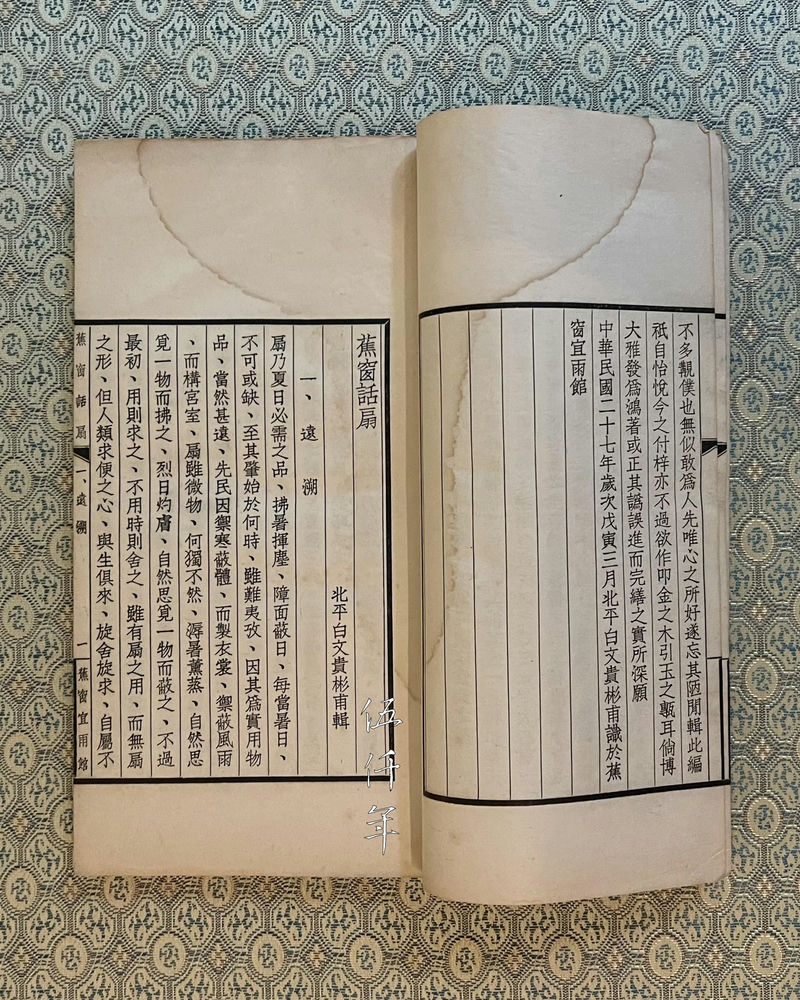 不多覯僕也無似敢爲人先唯心之所好遂忘其陋聞輯此編
祇自怡悅今之付梓亦不過欲作叩金之木引玉之甎耳倘博
大雅發爲鴻著或正其譌誤進而完繕之實所深願
中華民國二十七年歲次戊寅三月北平白文貴彬甫識於蕉
窗宜雨館
蕉窗話扇
北平白文貴彬甫輯
一、遠溯
扇乃夏日必需之品、拂暑揮塵、障面蔽日、每當暑日、
不可或缺、至其肇始於何時、雖難夷攷、因其爲實用物
品、當然甚遠、先民因禦寒蔽體、而製衣裳、禦蔽風雨
、而構宮室、扇雖微物、何獨不然、溽暑薰蒸、自然思
覓一物而拂之、烈日灼膚、自然思覓一物而蔽之、不過
最初、用則求之、不用時則舍之、雖有扇之用、而無扇
之形、但人類求便之心、與生俱來、旋舍旋求、自屬不
蕉窗話扇 一、遠溯 一 蕉窗宜雨館
伍仟年